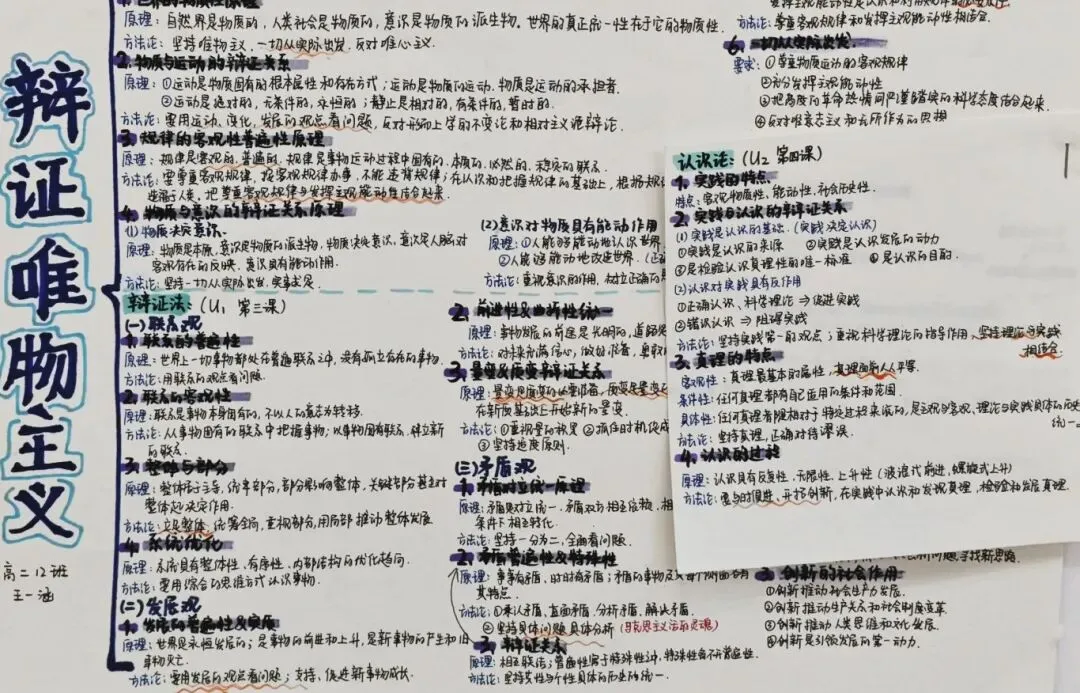 辩证唯物主义
高二12班
王一涵
原理：自然界是物质的，人类社会是物质的，意识是物质的派生物，世界的真正统一性在于它的物质性．
方法论：坚持唯物主义，一切从实际出发，反对唯心主义．
2. 物质与运动的辩证关系
原理：①运动是物质固有的根本属性和存在方式；运动是物质的运动，物质是运动的承担者．
②运动是绝对的，无条件的，永恒的；静止是相对的，有条件的，暂时的．
方法论：要用运动、变化、发展的观点看问题，反对形而上学的不变论和相对主义诡辩论．
3. 规律的客观性普遍性原理
原理：规律是客观的，普遍的，规律是事物运动过程中固有的、本质的、必然的、稳定的联系．
方法论：要尊重客观规律，按客观规律办事，不能违背规律；在认识和把握规律的基础上，根据规
造福于人类，把尊重客观规律与发挥主观能动性结合起来
4. 物质与意识的辩证关系原理
(1) 物质决定意识．
原理：物质是本原，意识是物质的派生物，物质决定意识，意识是人脑对
客观存在的反映，意识具有能动作用．
方法论：坚持一切从实际出发，实事求是．
(2) 意识对物质具有能动作用
原理：①人能够能动地认识世界
②人能够能动地改造世界．
方法论：重视意识的作用，树立正确的
方法论：尊重客观规律和发挥主观能动性相结合．
6. 一切从实际出发．
要求：①尊重物质运动的客观规律
②充分发挥主观能动性
③把高度的革命热情同严谨踏实的科学态度结合起来
④反对唯意志主义和无所作为的思想
辩证法：(U₁ 第三课)
(一) 联系观
1. 联系的普遍性
原理：世界上一切事物都处在普遍联系之中，没有孤立存在的事物．
方法论：用联系的观点看问题．
2. 联系的客观性
原理：联系是事物本身固有的，不以人的意志为转移．
方法论：从事物固有的联系中把握事物；以事物固有联系，建立新
的联系．
3. 整体与部分
原理：整体居于主导，统率部分，部分影响整体，关键部分甚至对
整体起决定作用．
方法论：立足整体，统筹全局，重视部分，用局部推动整体发展
4. 系统优化
原理：系统具有整体性、有序性、内部结构的优化趋向．
方法论：要用综合的思维方式认识事物．
(二) 发展观
1. 发展的普遍性&实质
原理：世界是永恒发展的；是事物的前进和上升，是新事物的产生和旧
事物灭亡．
方法论：要用发展的观点看问题；支持、促进新事物成长．
2. 前进性&曲折性统一
原理：事物发展的前途是光明的，道路
方法论：对未来充满信心，做好准备，勇敢
3. 量变&质变辩证关系
原理：量变是质变的必要准备，质变是量变
在新质基础上开始新的量变．
方法论：①重视量的积累 ②抓住时机促成
③坚持适度原则．
(三) 矛盾观
1. 矛盾对立统一原理
原理：矛盾即对立统一，矛盾双方相互依赖，相
条件下相互转化．
方法论：坚持一分为二、全面看问题．
2. 矛盾普遍性&特殊性
原理：事事有矛盾，时时有矛盾；矛盾的事物及其每个侧面各有
其特点．
方法论：①承认矛盾，直面矛盾，分析矛盾，解决矛盾．
②坚持具体问题具体分析（马克思主义活的灵魂）
3. 辩证关系
原理：相互联结；普遍性寓于特殊性之中，特殊性离不开普遍性．
方法论：坚持共性与个性具体的历史的统一．
认识论：(U₂ 第四课)
1. 实践的特点
特点：客观物质性、能动性、社会历史性．
2. 实践与认识的辩证关系
(1) 实践是认识的基础．(实践决定认识)
①实践是认识的来源 ②实践是认识发展的动力
③是检验认识真理性的唯一标准 ④是认识的目的．
(2) 认识对实践具有反作用
①正确认识、科学理论⇒促进实践
②错误认识⇒阻碍实践
方法论：坚持实践第一的观点；重视科学理论的指导作用，坚持理论与实践
相结合．
3. 真理的特点
客观性：真理最基本的属性，真理面前人人平等．
条件性：任何真理都有自己适用的条件和范围．
具体性：任何真理都是相对于特定过程来说的，是主观与客观、理论与实践具体的历史
统一
方法论：坚持真理，正确对待谬误．
4. 认识的过程
原理：认识具有反复性、无限性、上升性（波浪式前进，螺旋式上升）
方法论：要与时俱进，开拓创新，在实践中认识和发现真理，检验和发展真理．
寻找新思路
3. 创新的社会作用
①创新推动社会生产力发展．
②创新推动生产关系和社会制度变革
③创新推动人类思维和文化发展．
④创新是引领发展的第一动力．